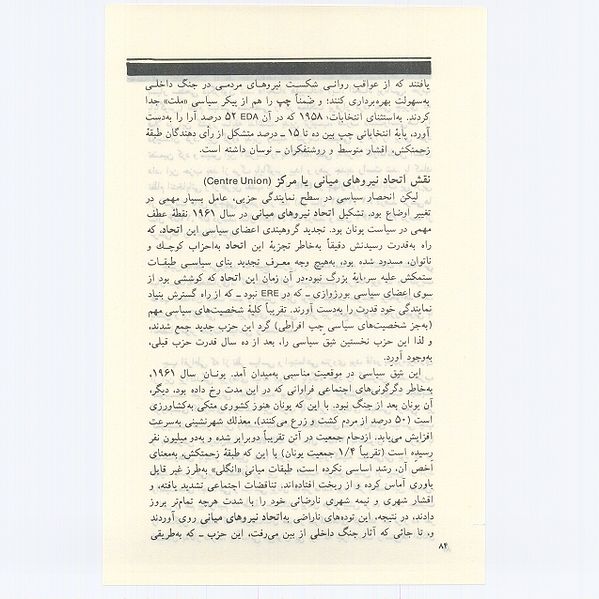 یافتند که از عواقب روانی شکست نیروهای مردمی در جنگ داخلی
به‌سهولت بهره‌برداری کنند؛ و ضمناً چپ را هم از پیکر سیاسی «ملت» جدا
کردند. به‌استثنای انتخابات، ۱۹۵۸ که در آن EDA ۵۲ درصد آرا را به‌دست
آورد، پایهٔ انتخاباتی چپ بین ده تا ۱۵ ــ درصد متشکل از رأی دهندگان طبقهٔ
زحمتکش، اقشار متوسط و روشنفکران ــ نوسان داشته است.
نقش اتحاد نیروهای میانی یا مرکز (Centre Union)
لیکن انحصار سیاسی در سطح نمایندگی حزبی، عامل بسیار مهمی در
تغییر اوضاع بود. تشکیل اتحاد نیروهای میانی در سال ۱۹۶۱ نقطهٔ عطف
مهمی در سیاست یونان بود. تجدید گروهبندی اعضای سیاسی این اتحاد که
راه به‌قدرت رسیدنش دقیقاً به‌خاطر تجزیهٔ این اتحاد به‌احزاب کوچک و
ناتوان، مسدود شده بود، به‌هیچ وجه معرف تجدید بنای سیاسی طبقات
ستمکش علیه سرمایهٔ بزرگ نبود. در آن زمان این اتحاد که کوششی بود از
سوی اعضای سیاسی بورژوازی ــ که در ERE نبود ــ که از راه گسترش بنیاد
نمایندگی خود قدرت را به‌دست آورند. تقریباً کلیهٔ شخصیت‌های سیاسی مهم
(به‌جز شخصیت‌های سیاسی چپ افراطی) گرد این حزب جدید جمع شدند،
و لذا این حزب نخستین شق سیاسی را، بعد از ده سال قدرت حزب قبلی،
به‌وجود آورد.
این شق سیاسی در موقعیت مناسبی به‌میدان آمد. یونان سال ۱۹۶۱،
به‌خاطر دگرگونی‌های اجتماعی فراوانی که در این مدت رخ داده بود، دیگر،
آن یونان بعد از جنگ نبود. با این که یونان هنوز کشوری متکی به‌کشاورزی
است (۵۰ درصد از مردم کشت و زرع می‌کنند)، معذلك شهرنشینی به‌سرعت
افزایش می‌یابد. ازدحام جمعیت در آتن تقریباً دوبرابر شده و به‌دو میلیون نفر
رسیده است (تقریباً ۱/۴ جمعیت یونان) با این که طبقهٔ زحمتکش، به‌معنای
اخص آن، رشد اساسی نکرده است، طبقات میانیِ «انگلی» به‌طرز غیر قابل
باوری آماس کرده و از ریخت افتاده‌اند. تناقضات اجتماعی تشدید یافته، و
اقشار شهری و نیمه شهری نارضائی خود را با شدت هرچه تمام‌تر بروز
دادند، در نتیجه، این توده‌های ناراضی به‌اتحاد نیروهای میانی روی آوردند
و، تا جائی که آثار جنگ داخلی از بین می‌رفت، این حزب ــ که به‌طریقی
۸۴